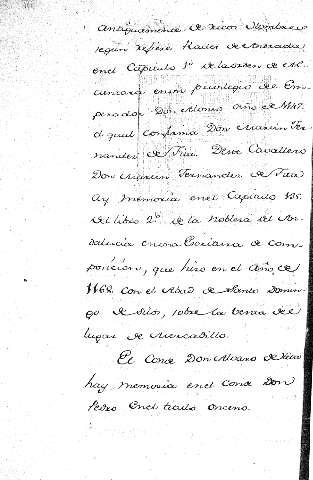 antiguamente de ricos Hombres
segun refiere Rades de Andrada
en el Capitulo 1º de la orden de Al
cantara en un privilegio de Em
perador Don Alonso año de 1147.
el qual confirma Don Martin Fer
nandez de Fita. Deste Cavallero
Don Martin Fernandez de Fita
ay memoria en el Capitulo 135
del libro 2º de la Nobleza del An
dalucia en una Escritura de com
posicion, que hizo en el Año, de
1162 con el Abad de Santo Domin
go de Silos, sobre la venta del
lugar de Mercadillo.
El Conde Don Alvaro de
hay memoria en el Conde Don
Pedro En el titulo onceno.